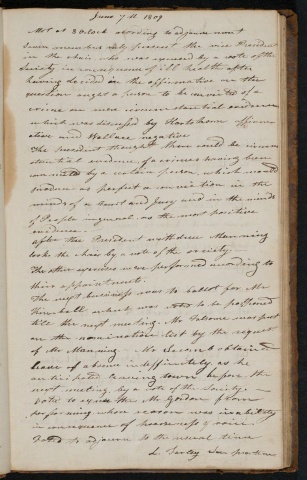 June 7th 1809
Met at 8 Oclock according to adjournment
Seven members only present the vice President
in the chair who was excused by a vote of the
Society in consequence of ill health after
having decided in the affirmative on the
question ought a person to be convicted of a
crime on mere circumstantial evidence
which was discussed by affirm
ative and Wallace negative
The President thought there could be circum
stantial evidence of a crimes having been
committed by a certain person, which would
produce as perfect a conviction in the
minds of a Court and Jury and in the minds
of People in general, as the most positive
evidence.
After the President withdrew Manning
took the chair by a vote of the society.
The other exercises were performed according to
their appointment.
The next business was to ballot for Mr
Kimball which was voted to be postponed
till the next meeting. Mr was put
on the nomination list by the request
of Mr Manning. Mr obtained
leave of absence indefinitely as he
anticipated leaving town before the
next meeting, by a vote of the Society.
Voted to excuse Mr Gordon from
performing whose reason was inability
in consequence of hoarseness of voice.
Voted to adjourn to the usual time
L. Farley Sec pro tem